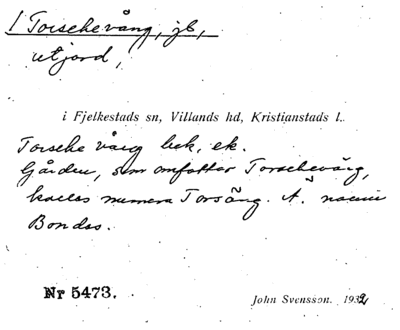 1 Torschevång, jb,
utjord,
i Fjelkestads sn, Villands hd, Kristianstads l.
Torsche vång bek. ek.
Gården, som omfattar Torschevång,
kallas numera Torsäng. A.
Bondes.
Nr 5473.
John Svensson. 1932